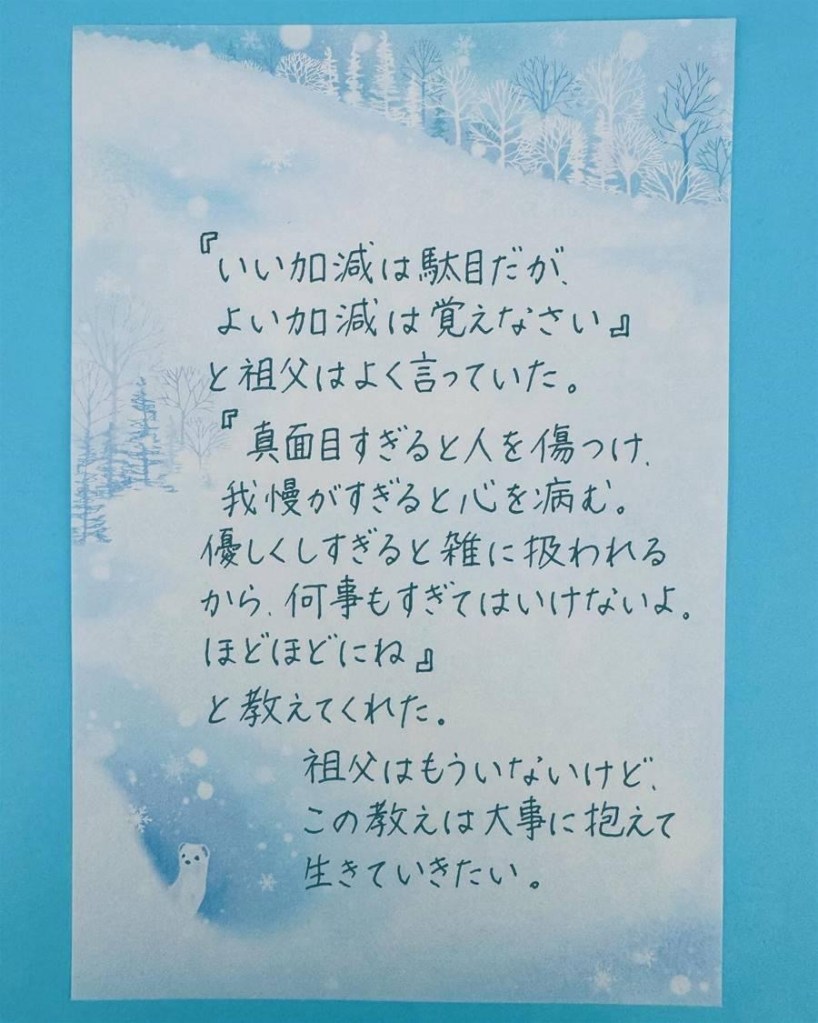 『いい加減は駄目だが、
よい加減は覚えなさい』
と祖父はよく言っていた。
『真面目すぎると人を傷つけ、
我慢がすぎると心を病む。
優しくしすぎると雑に扱われる
から、何事もすぎてはいけないよ。
ほどほどにね』
と教えてくれた。
祖父はもういないけど、
この教えは大事に抱えて
生きていきたい。